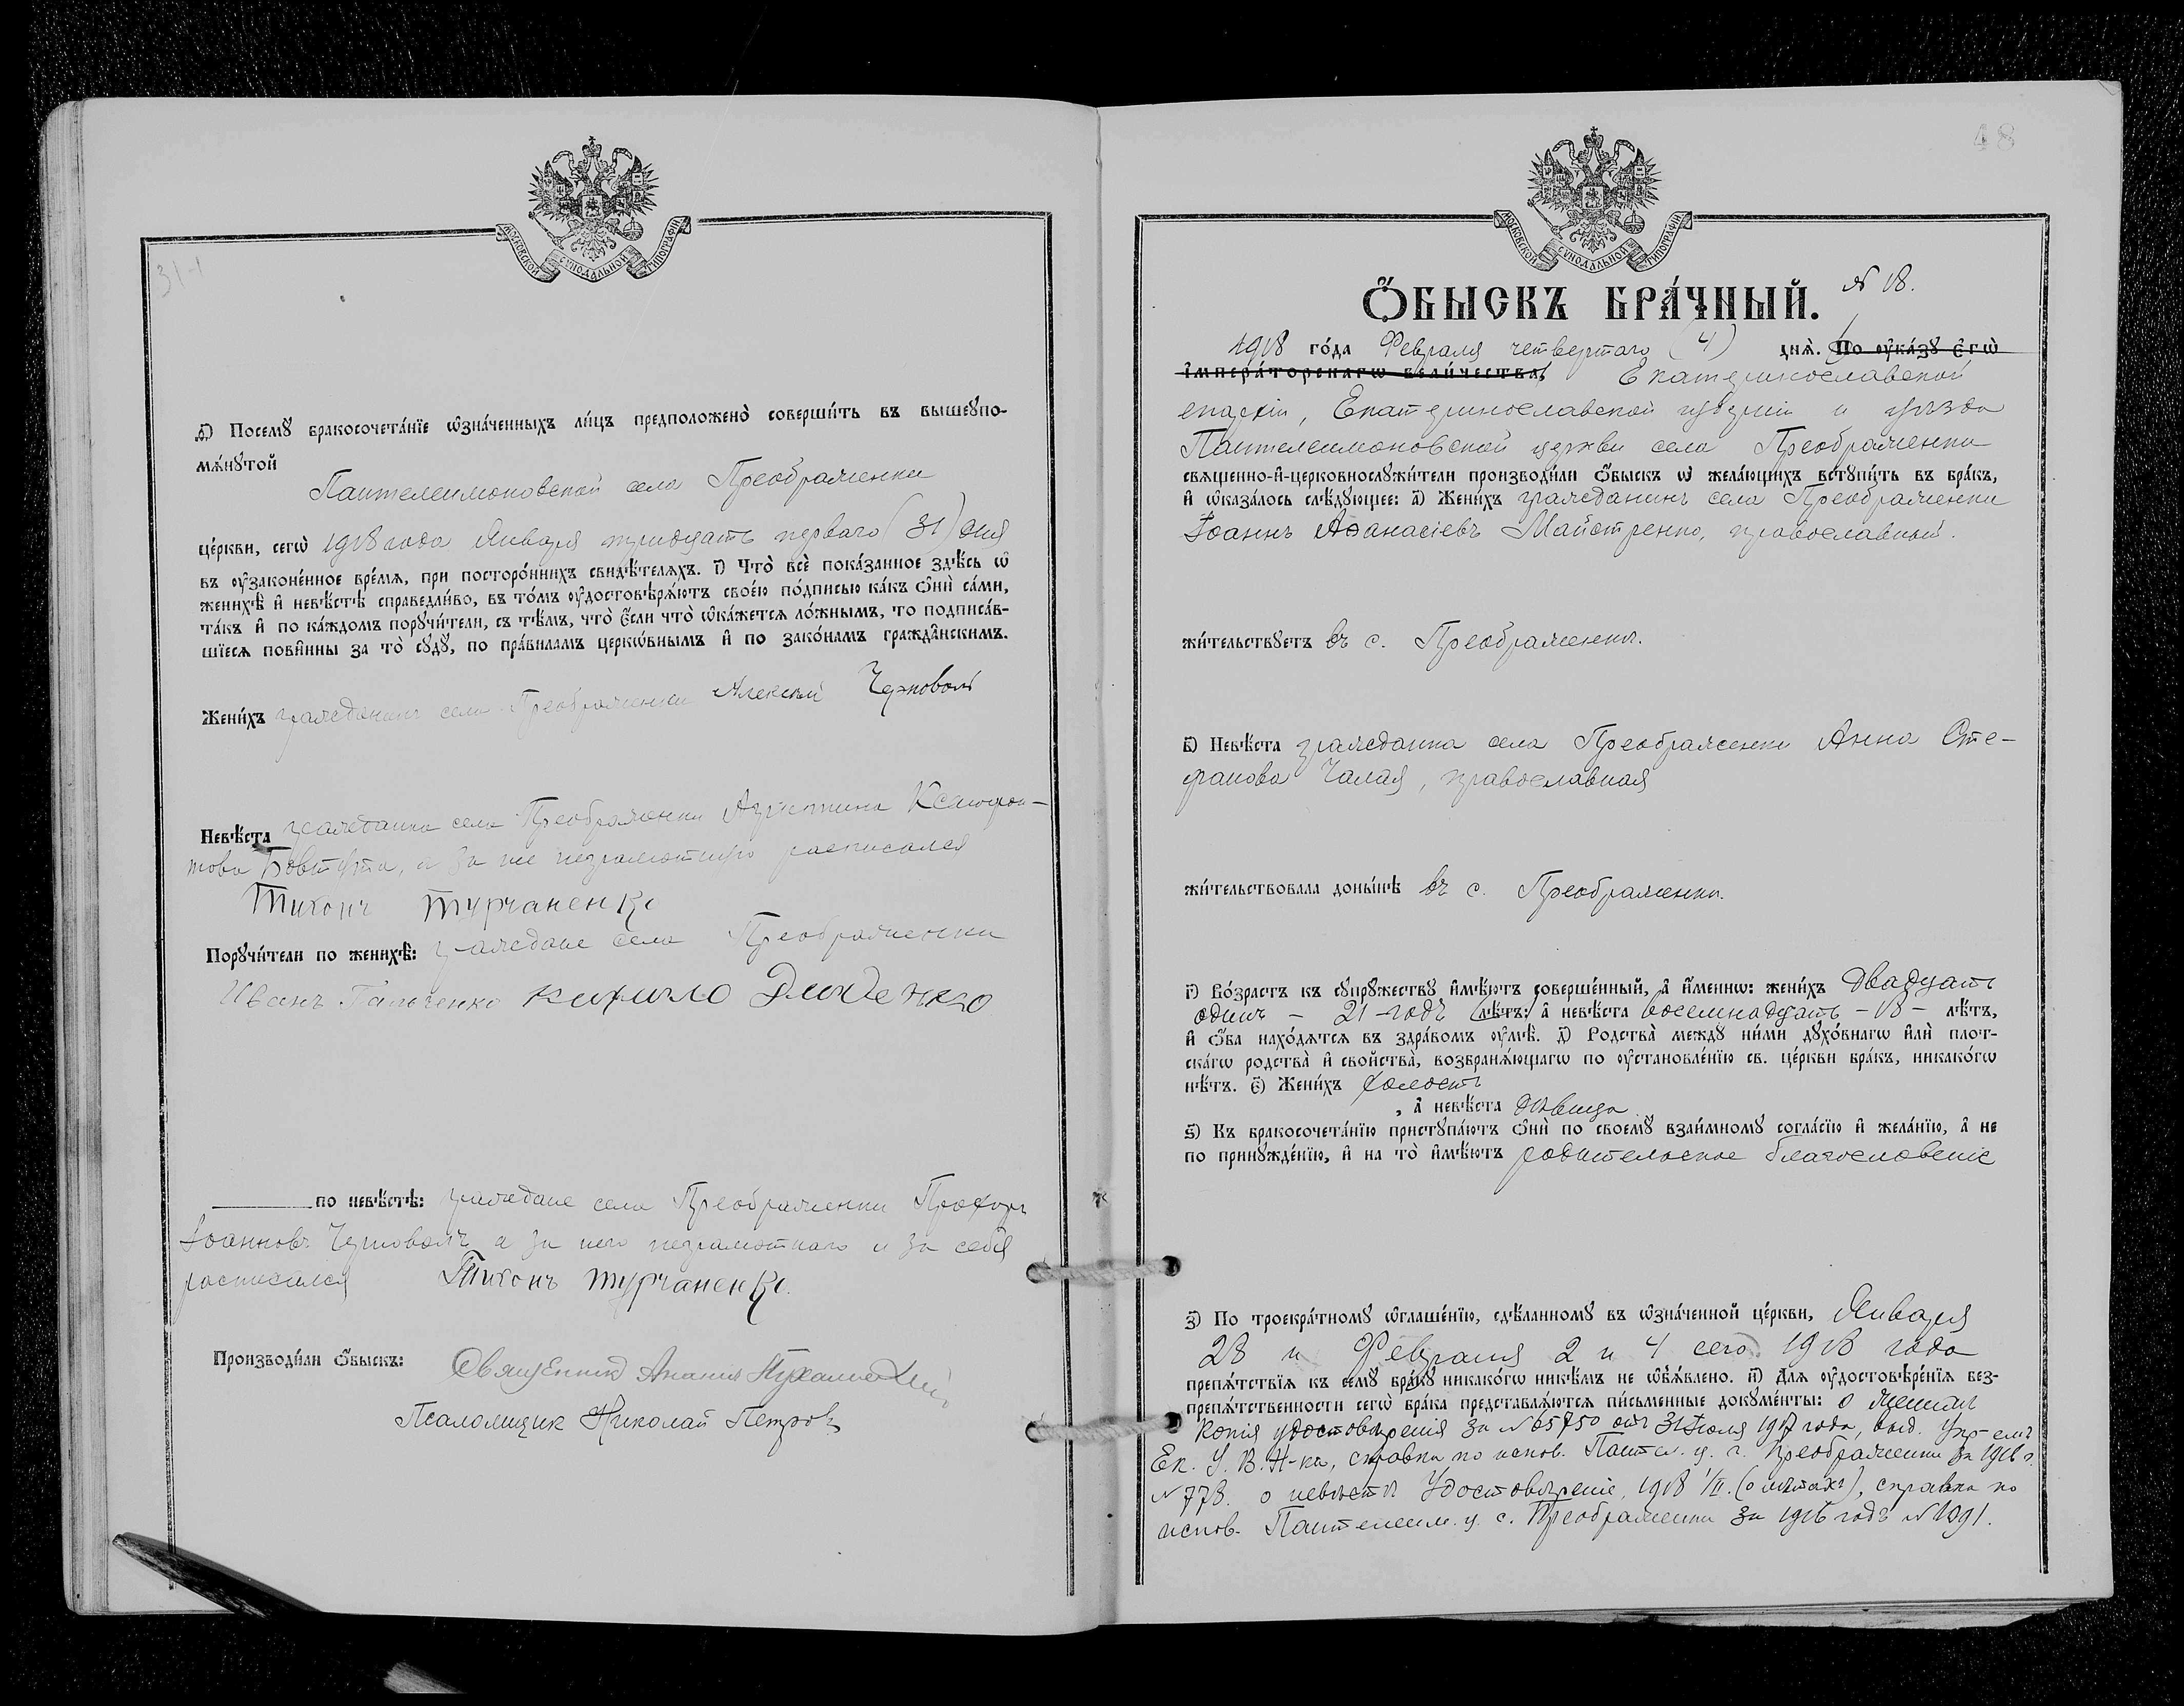 31-1
МОСКОВСКОЙ СѴНОДАЛЬНОЙ ТИПОГРАФІИ
Посемꙋ̀ бракосочета́нїе ѡ҆зна́ченныхъ ли́цъ предположено̀ соверши́ть въ вышеꙋпо-
мѧ́нꙋтой
Пантелеимоновской села Преображенки
це́ркви, сегѡ̀ 1918 года Января тридцать перваго (31) дня
въ ᲂу҆законе́нное вре́мѧ, при посторо́ннихъ свидѣ́телѧхъ. Что̀ всѐ пока́занное здѣ́сь ѡ҆
женихѣ̀ и҆ невѣ́стѣ справедли́во, въ то́мъ ᲂу҆достовѣрѧ́ютъ свое́ю по́дписью ка́къ ѻ҆нѝ са́ми,
та́къ и҆ по ка́ждомъ порꙋчи́тели, съ тѣ́мъ, что̀ є҆́сли что̀ ѡ҆ка́жетсѧ ло́жнымъ, то подписа́в-
шїесѧ пови́нны за то̀ сꙋдꙋ̀, по пра́виламъ церко́внымъ и҆ по зако́намъ гражда́нскимъ.
Жени́хъ гражданинъ села Преображенки Алексѣй Черноволъ
Невѣ́ста гражданка села Преображенки Ксенофон-
това Бовтута, а за нее неграмотную расписался
Тихонъ Турчаненко
Порꙋчи́тели по женихѣ̀: граждане села Преображенки
Иванъ Кирило
по невѣ́стѣ: граждане села Преображенки Прохоръ
Іоанновъ Черноволъ а за него неграмотнаго и за себя
росписался Тихонъ Турчаненко.
Производи́ли ѻ҆́быскъ: Священник Анания
Псаломщик Николай Петров
48
МОСКОВСКОЙ СѴНОДАЛЬНОЙ ТИПОГРАФІИ
Ѻ҆́БЫСКЪ БРА́ЧНЫЙ. № 18.
1918 го́да Февраля четвертаго (4) днѧ̀. По ᲂу҆ка́зꙋ є҆гѡ̀
і҆мпера́торскагѡ вели́чества, Екатеринославской
епархіи, Екатеринославской губерніи и уѣзда
Пантелеимоновской церкви села Преображенки
свѧщенно-и҆-церковнослꙋжи́тели производи́ли ѻ҆́быскъ ѡ҆ жела́ющихъ встꙋпи́ть въ бра́къ,
и҆ ѡ҆каза́лось слѣ́дꙋющее: а҃) Жени́хъ гражданинъ села Преображенки
Іоаннъ Аѳанасіевъ Майстренко, православный.
жи́тельствꙋетъ въ с. Преображенкѣ.
в҃) Невѣ́ста гражданка села Преображенки Анна Сте-
фанова Чалая, православная
жи́тельствовала доны́нѣ въ с. Преображенкѣ.
г҃) Во́зрастъ къ сꙋпрꙋ́жествꙋ и҆мѣ́ютъ соверше́нный, а҆ и҆́меннѡ: жени́хъ двадцать
одинъ – 21 – годъ лѣ́тъ: а҆ невѣ́ста восемнадцать – 18 – лѣ́тъ,
и҆ ѻ҆́ба нахо́дѧтсѧ въ здра́вомъ ᲂу҆мѣ̀. д҃) Родства̀ междꙋ ни́ми дꙋхо́внагѡ и҆лѝ плот-
ска́гѡ родства̀ и҆ сво́йства̀, возбранѧ́ющагѡ по ᲂу҆становле́нїю св. це́ркви бра́къ, никако́гѡ
нѣ́тъ. є҃) Жени́хъ холостъ
, а҆ невѣ́ста дѣвица
ѕ҃) Къ бракосочета́нїю пристꙋпа́ютъ ѻ҆нѝ по своемꙋ̀ взаи́мномꙋ согла́сїю и҆ жела́нїю, а҆ не
по принꙋжде́нїю, и҆ на то̀ и҆мѣ́ютъ родительское благословеніе
з҃) По троекра́тномꙋ ѡ҆глаше́нїю, сдѣ́ланномꙋ въ ѡ҆зна́ченной це́ркви, Января
28 и Февраля 2 и 4 сего 1918 года
препѧ́тствїѧ къ семꙋ̀ бра́кꙋ никако́гѡ никѣ́мъ не ѡ҆б̾ѧ́влено. и҃) Длѧ ᲂу҆достовѣре́нїѧ без-
препѧ́тственности сегѡ̀ бра́ка представлѧ́ютсѧ пи́сьменные докꙋме́нты: о женихѣ
Копія удостовѣренія за № 65750 отъ 31 Іюля 1917 года, выд. Упр-емъ
Ек. У. В. Н-ка, справка по испов. Пантел. ц. с. Преображенки за 1916 г.
№ 778. о невѣстѣ Удостовѣреніе, 1918 1/II. (о лѣтахъ), справка по
испов. Пантелеим. ц. с. Преображенки за 1916 годъ № 1091.